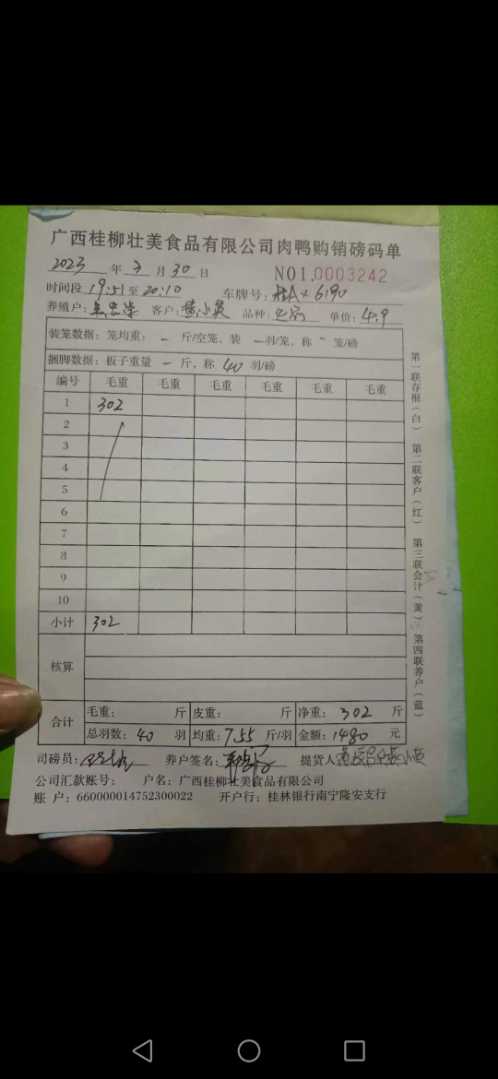 广西桂柳壮美食品有限公司肉鸭购销磅码单
2023 年 3 月 30 日 NO1.0003242
时间段 19:51 至 20:10 车牌号:
养殖户: 客户: 品种: 单价: 4.9
装笼数据: 笼均重: - 斤/空笼、装 - 羽/笼、称 - 笼/磅
捆脚数据: 板子重量 - 斤、称 40 羽/磅
编号 毛重 毛重 毛重 毛重 毛重 毛重
1 302
2
3
4
5
6
7
8
9
10
小计 302
核算
合计
毛重: 斤 皮重: 斤 净重: 302 斤
总羽数: 40 羽 均重: 7.55 斤/羽 金额: 1480 元
司磅员: 养户签名: 提货人
公司汇款账号: 户名: 广西桂柳壮美食品有限公司
账 户: 660000014752300022 开户行: 桂林银行南宁隆安支行
第一联存根(白) 第二联客户(红) 第三联会计(黄) 第四联养户(蓝)